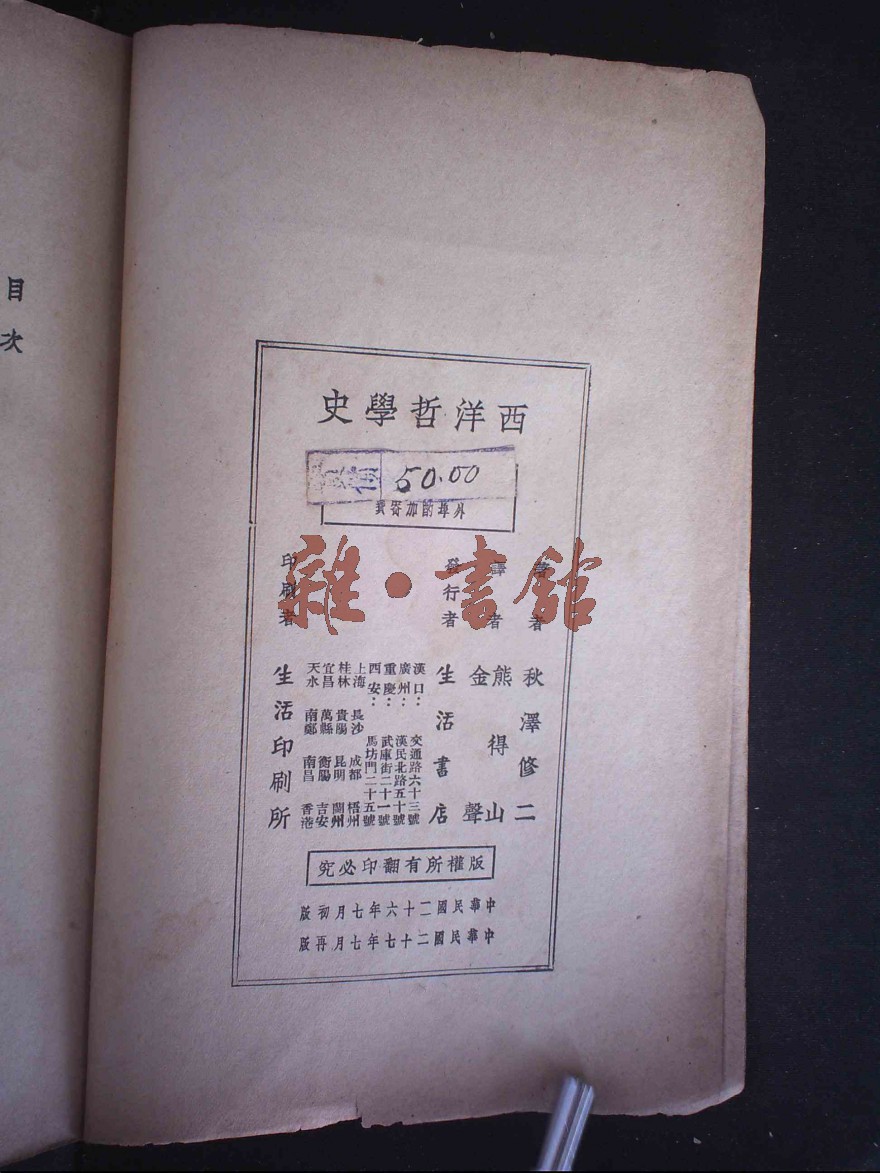 目次
西洋哲學史
50.00
外埠酌加寄費
著者 秋澤修二
譯者 熊得山 金聲
發行者 生活書店
漢口：交通路六十三號
廣州：漢民北路五十號
重慶：武庫街二十一號
西安：馬坊門二十五號
上海 長沙 成都 梧州
桂林 貴陽 昆明 蘭州
宜昌 萬縣 衡陽 吉安
天水 南鄭 南昌 香港
印刷者 生活印刷所
版權所有翻印必究
中華民國二十六年七月初版
中華民國二十七年七月再版
雜·書館